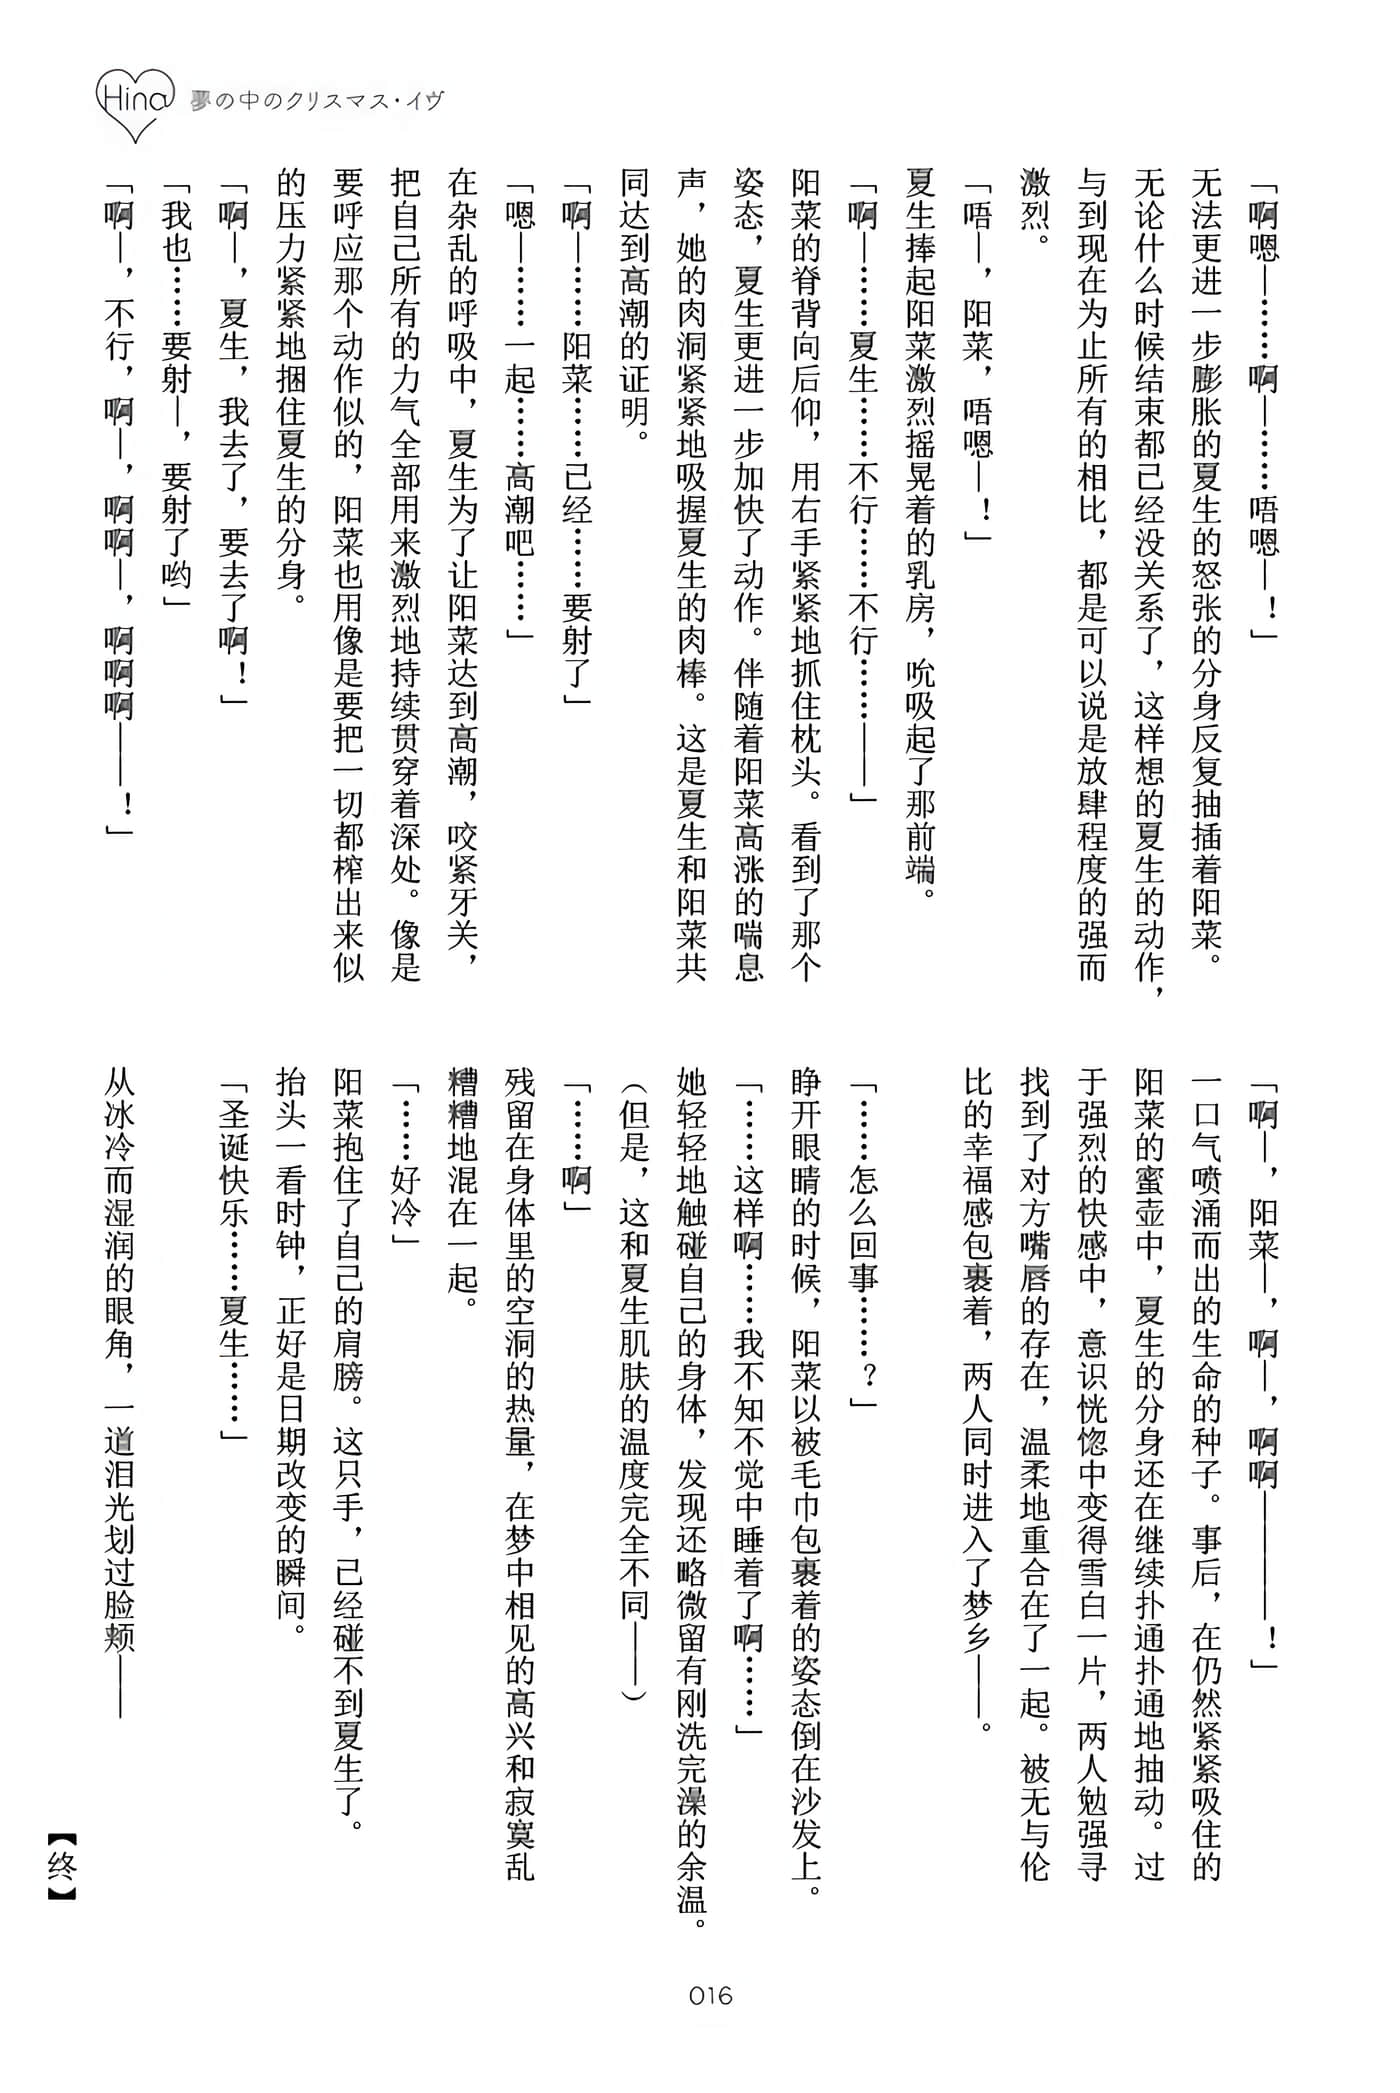 Hina 夢の中のクリスマス・イヴ
「啊嗯—……啊—……唔嗯—！」
无法更进一步膨胀的夏生的怒张的分身反复抽插着阳菜。
无论什么时候结束都已经没关系了，这样想的夏生的动作，
与到现在为止所有的相比，都是可以说是放肆程度的强而
激烈。
「唔—，阳菜，唔嗯—！」
夏生捧起阳菜激烈摇晃着的乳房，吮吸起了那前端。
「啊—……夏生……不行……不行………——」
阳菜的脊背向后仰，用右手紧紧地抓住枕头。看到了那个
姿态，夏生更进一步加快了动作。伴随着阳菜高涨的喘息
声，她的肉洞紧紧地吸握夏生的肉棒。这是夏生和阳菜共
同达到高潮的证明。
「啊—……阳菜……已经……要射了」
「嗯—……一起……高潮吧……」
在杂乱的呼吸中，夏生为了让阳菜达到高潮，咬紧牙关，
把自己所有的力气全部用来激烈地持续贯穿着深处。像是
要呼应那个动作似的，阳菜也用像是要把一切都榨出来似
的压力紧紧地捆住夏生的分身。
「啊—，夏生，我去了，要去了啊！」
「我也……要射—，要射了哟」
「啊—，不行，啊—，啊啊—，啊啊啊——！」
「啊—，阳菜—，啊—，啊啊————！」
一口气喷涌而出的生命的种子。事后，在仍然紧紧吸住的
阳菜的蜜壶中，夏生的分身还在继续扑通扑通地抽动。过
于强烈的快感中，意识恍惚中变得雪白一片，两人勉强寻
找到了对方嘴唇的存在，温柔地重合在了一起。被无与伦
比的幸福感包裹着，两人同时进入了梦乡——。
「……怎么回事……？」
睁开眼睛的时候，阳菜以被毛巾包裹着的姿态倒在沙发上。
「……这样啊……我不知不觉中睡着了啊……」
她轻轻地触碰自己的身体，发现还略微留有刚洗完澡的余温。
（但是，这和夏生肌肤的温度完全不同——）
「……啊」
残留在身体里的空洞的热量，在梦中相见的高兴和寂寞乱
糟糟地混在一起。
「……好冷」
阳菜抱住了自己的肩膀。这只手，已经碰不到夏生了。
抬头一看时钟，正好是日期改变的瞬间。
「圣诞快乐……夏生……」
从冰冷而湿润的眼角，一道泪光划过脸颊——
【终】
016